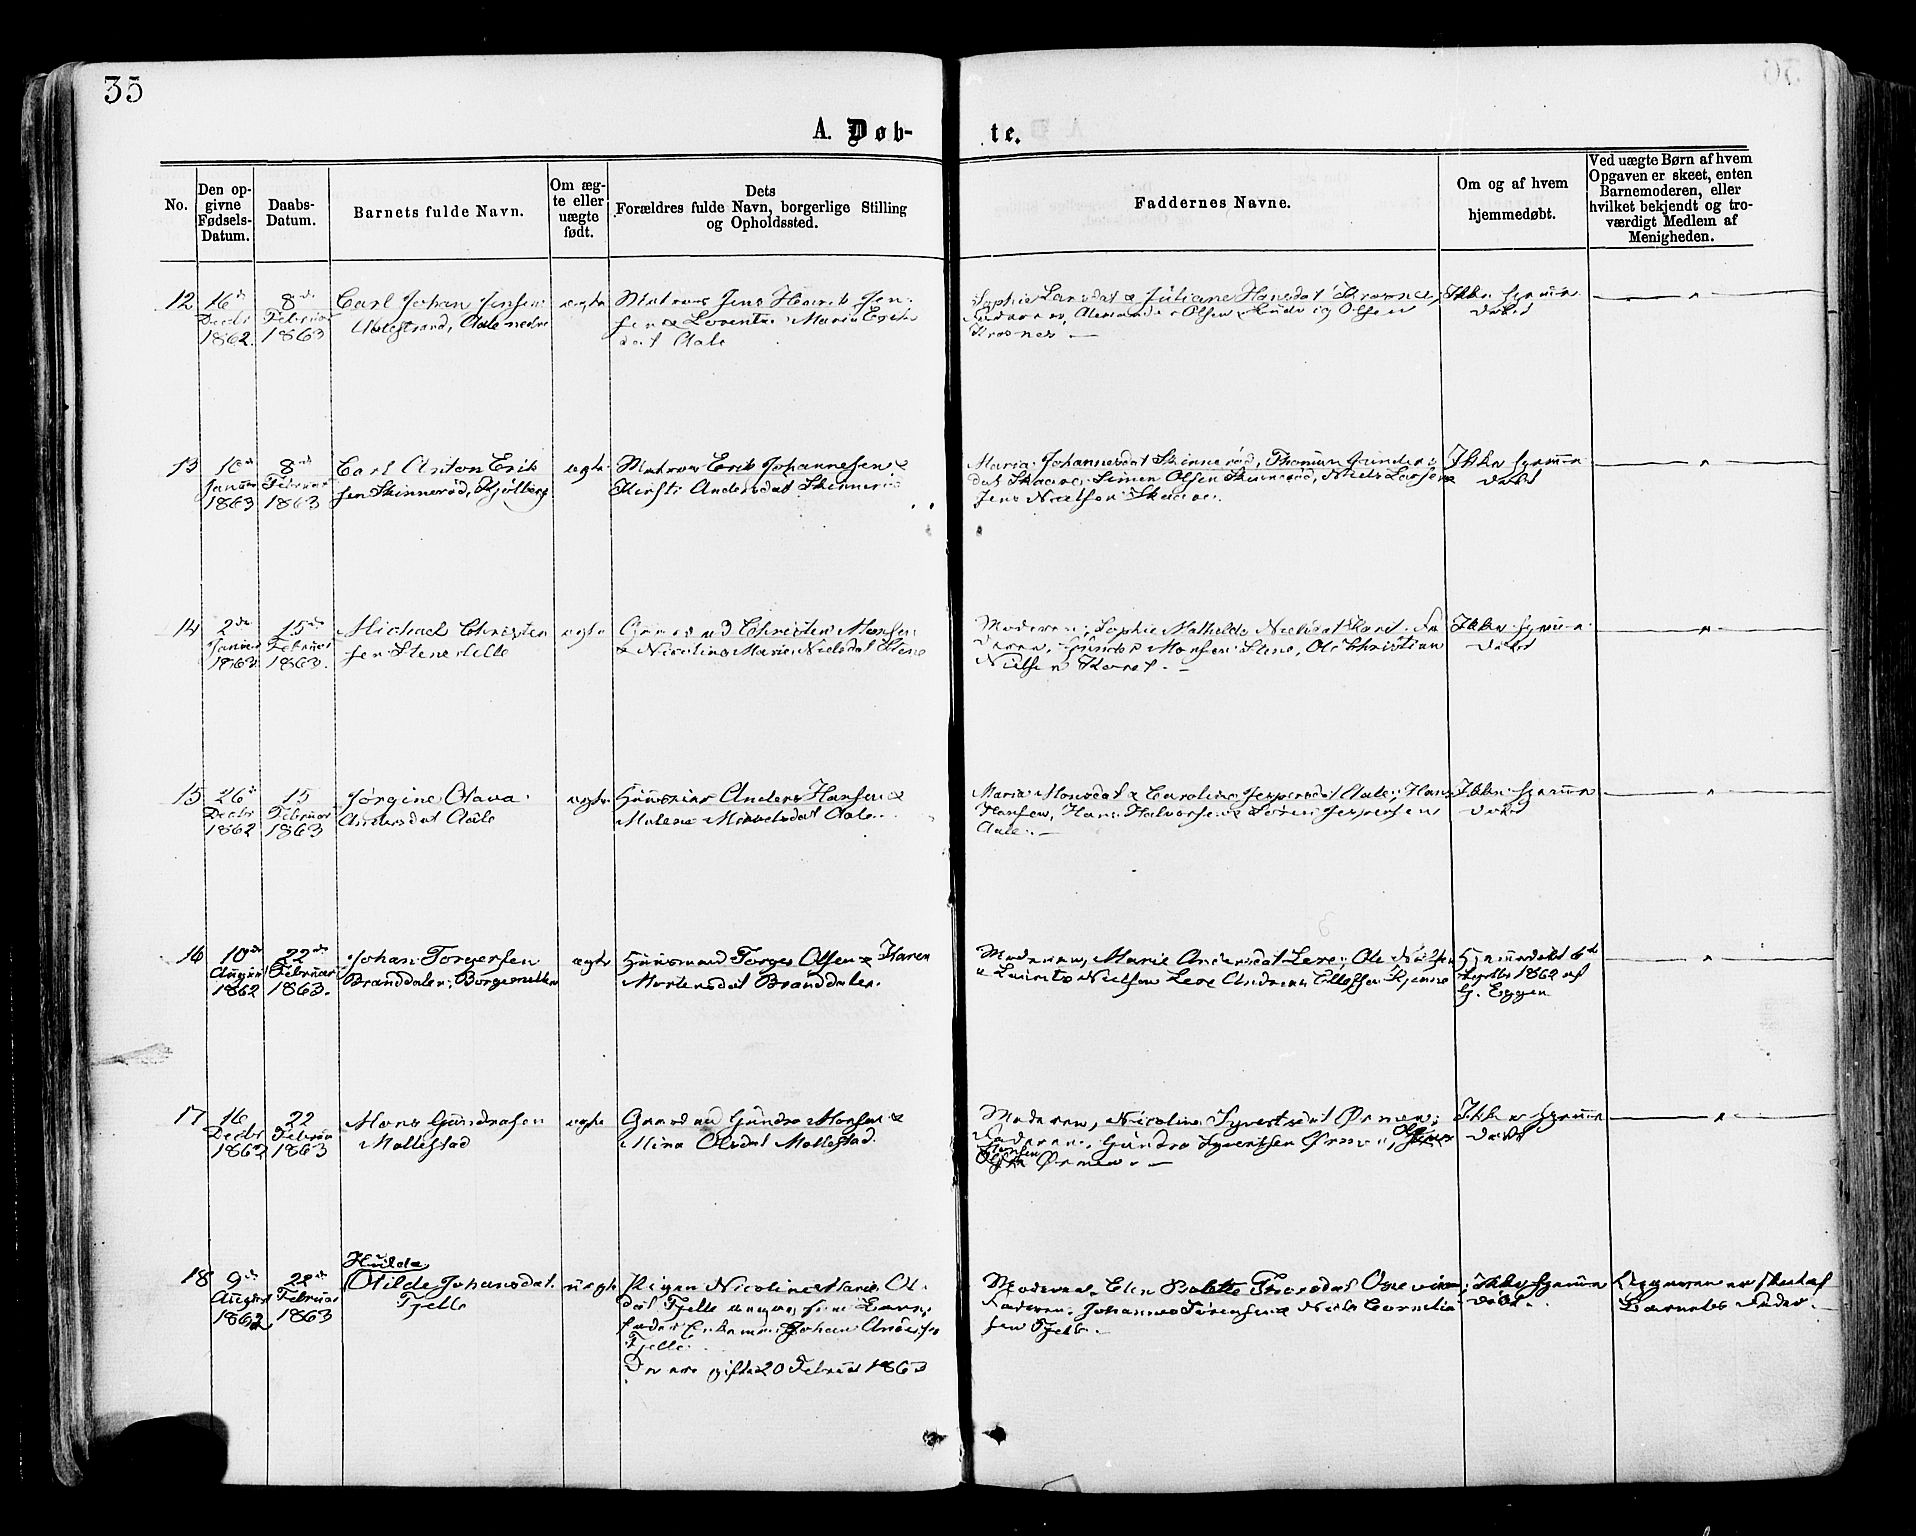 35
A. Døb-
te.
No.
Den op-
givne
Fødsels-
Datum.
Daabs-
Datum.
Barnets fulde Navn.
Om æg-
te eller
uægte
født.
Dets
Forældres fulde Navn, borgerlige Stilling
og Opholdssted.
Faddernes Navne.
Om og af hvem
hjemmedøbt.
Ved uægte Børn af hvem
Opgaven er skeet, enten
Barnemoderen, eller
hvilket bekjendt og tro-
værdigt Medlem af
Menigheden.
12
16de
Decbr
1862.
8de
Februar
1863
Carl Johan Jensen
Aalestrand, Aale nedre
ægte
Matros Jens Henrik Jen-
sen & Lorentze Maria Eriks
dat Aale
Sophie Larsdat & Juliane Hansdat Krosnes,
Faderen, Alexander Olsen & Ludvig Olsen
Krosnes —
Ikke hjemme
døbt
13
Januar
1863
8de
Februar
1863
Carl Anton Erik
sen Skinnerød, Kjølberg
ægte
Matros Erik Johannesen &
Kirsti Andersdat Skinnerød
Maria Johannesdat Skinnerød, Gunder
dat Skaare, Simen Olsen Skinnerød, Niels Larsen &
Jens Nielsen Skaare.
Ikke hjemme
døbt
14
2de
Januar
1863
15de
Februar
1863.
Michael Christen
sen Stene
ægte
Gaardmd Christen Monsen
& Nicoline Marie Nielsdat Stene
Moderen, Sophie Mathilde Nielsdat Fa
deren, Gunder Monsen Stene, Ole Christian
Nielsen —
Ikke hjemme
døbt
15
26de
Decbr
1862
15
Februar
1863
Jørgine Olava
Andersdat Aale
ægte
Huusmand Anders Hansen &
Malene Aale
Maria Monsdat & Caroline Jespersdat Aale, Hans
Hansen, Hans Halvorsen & Søren Jespersen
Aale. —
Ikke hjemme
døbt
16
10de
August
1862
22de
Februar
1863.
Johan Torgersen
Branddalen,
ægte
Huusmand Torger Olsen & Karen
Mortensdat Branddalen.
Moderen, Marie Andersdat Lere, Ole Nielsen
& Laurits Nielsen Lere Andreas Ellefsen
Hjemmedøbt 6te
Septbr 1862 af
G. Eggen
17
16
Decbr
1862
22
Februar
1863
Mons Gundrosen
Mollestad
ægte
Gaardmd Gundro Monsen &
Mina Olsdat Mollestad.
Moderen, Nicoline Syvertsdat Ørmen,
Faderen, Gundro Syvertsen Ørmen,
Hansen
Ørmen. —
Ikke hjemme
døbt
18
9de
August
1862
22de
Februar
1863
Hulda
Otilde Johansdat
Fjelle
uægte
Pigen Nicoline Maria Ol-
dat Fjelle angav som Barne
fader Enkemand Johan Anderssen
Fjelle.
De ere gifte 20 Februar 1863
Moderen, Elen Bolette Thorsdat
Faderen, Johannes Sørensen & Niels Cornelius
sen Fjelle. —
Ikke hjemme
døbt.
Opgaven er skeet af
Barnets Fader.